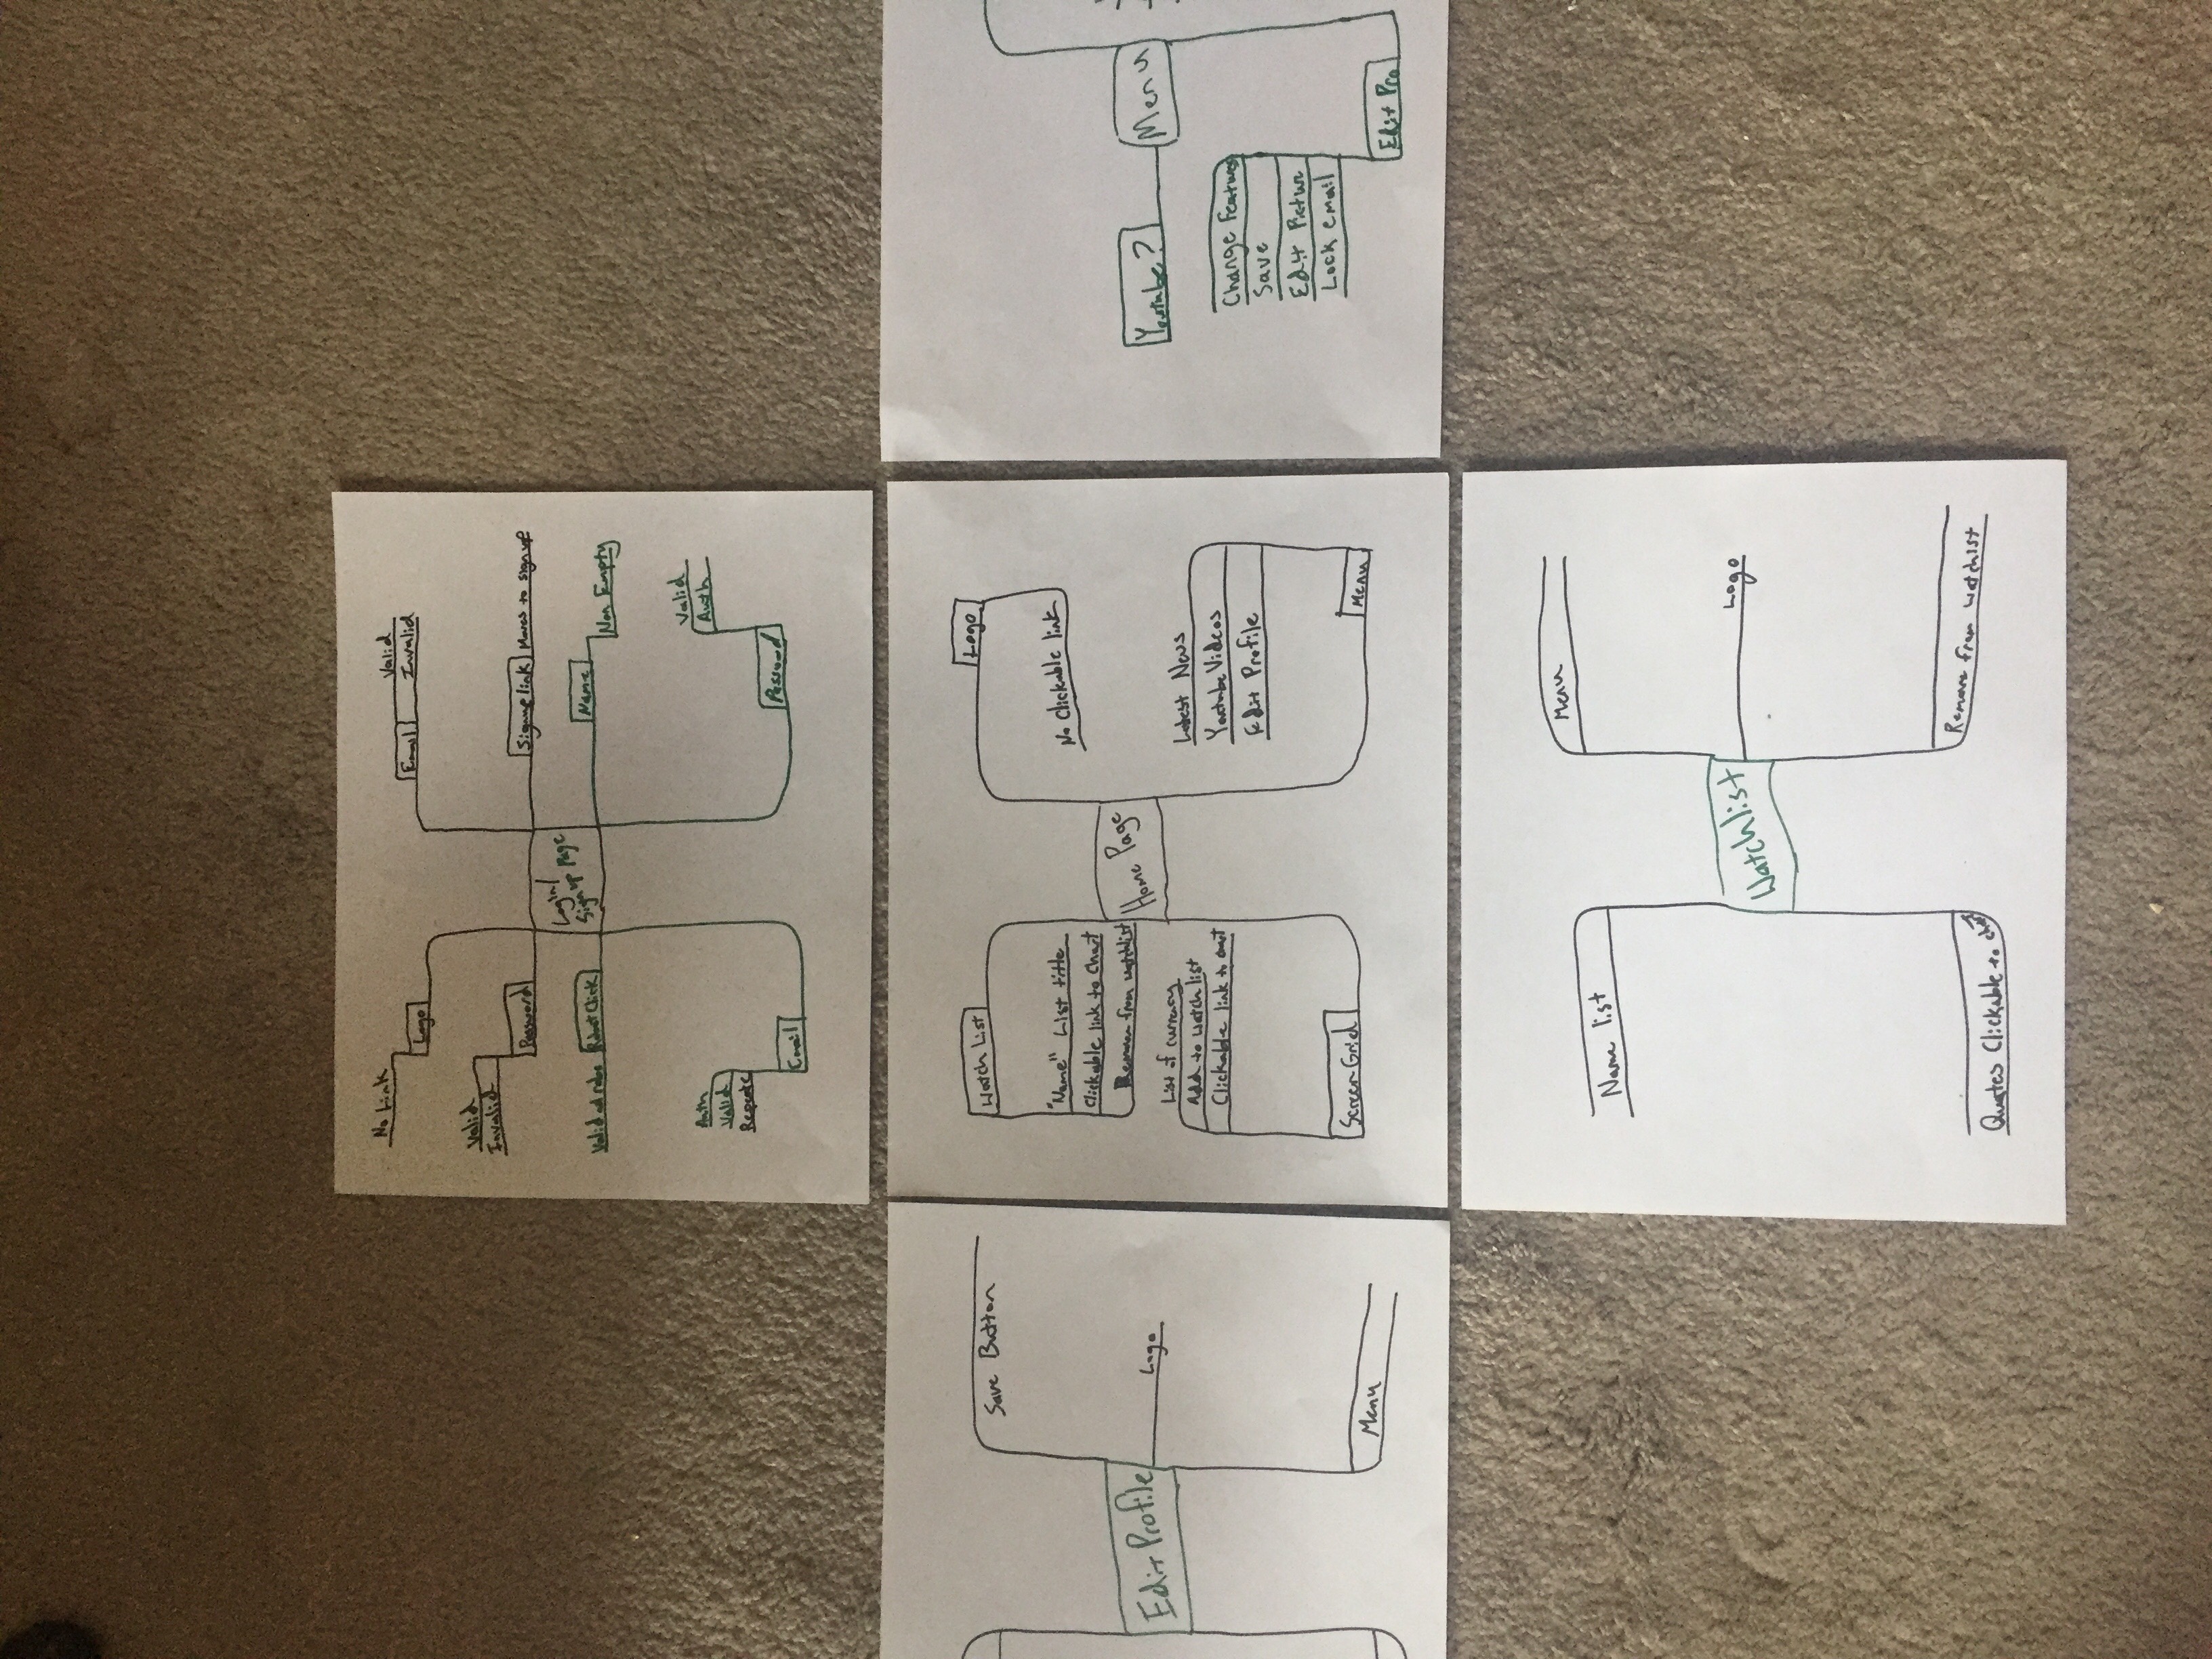 No Link
Logo
Valid
Invalid
Password
Valid ad robo
Robot Click
Auth
Valid
Repeate
Email
Login/
Sign up Page
Valid
Invalid
Email
Signup link
Moves to sign up
Name
Non Empty
Valid
Auth
Password
Save Button
Edit Profile
Logo
Menu
Watch List
"Name" List title
Clickable link to Chart
Remove from watchlist
List of currency
Add to watch list
Clickable link to chart
Screen Grid
Home Page
Logo
No Clickable link
Latest News
Youtube Videos
Edit Profile
Menu
Youtube?
Menu
Change Features
Save
Edit Pictur
Lock email
Edit Pro
Name list
Quotes Clickable to chart
Watchlist
Menu
Logo
Remove from watchlist